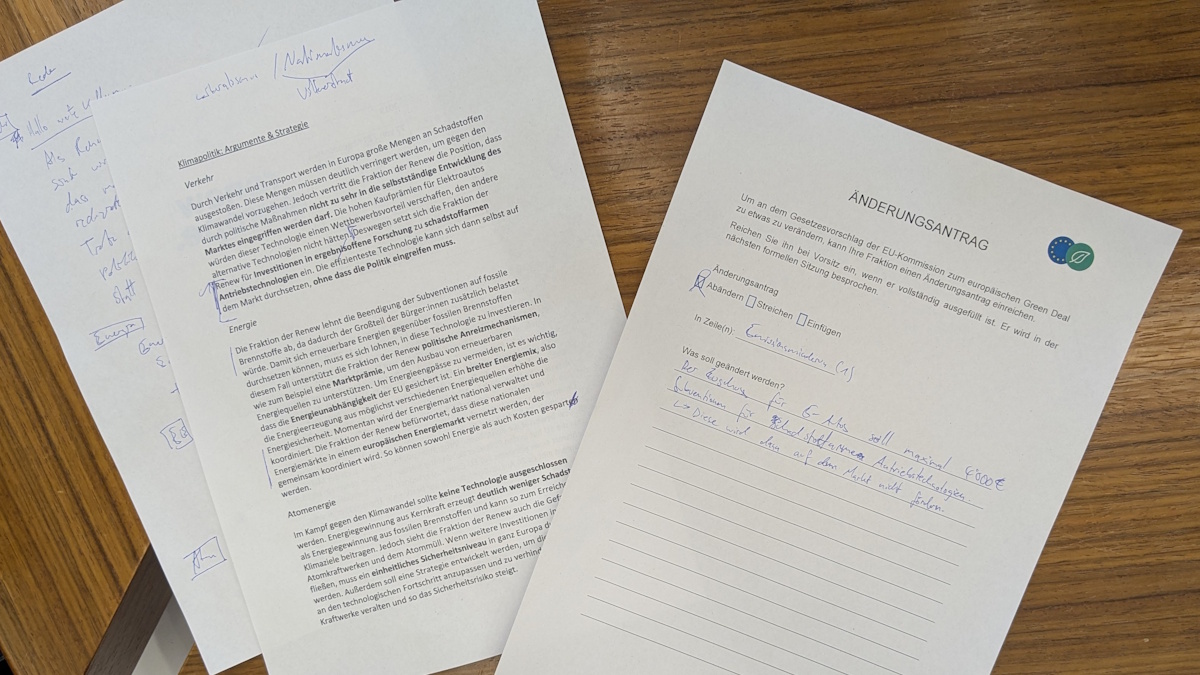 Rede
Hallo
Als
sind
das
Trotz
statt
Energie
/ Nationalismus
Klimapolitik: Argumente & Strategie
Verkehr
Durch Verkehr und Transport werden in Europa große Mengen an Schadstoffen
ausgestoßen. Diese Mengen müssen deutlich verringert werden, um gegen den
Klimawandel vorzugehen. Jedoch vertritt die Fraktion der Renew die Position, dass
durch politische Maßnahmen nicht zu sehr in die selbstständige Entwicklung des
Marktes eingegriffen werden darf. Die hohen Kaufprämien für Elektroautos
würden dieser Technologie einen Wettbewerbsvorteil verschaffen, den andere
alternative Technologien nicht hätten. Deswegen setzt sich die Fraktion der
Renew für Investitionen in ergebnisoffene Forschung zu schadstoffarmen
Antriebstechnologien ein. Die effizienteste Technologie kann sich dann selbst auf
dem Markt durchsetzen, ohne dass die Politik eingreifen muss.
Energie
Die Fraktion der Renew lehnt die Beendigung der Subventionen auf fossile
Brennstoffe ab, da dadurch der Großteil der Bürger:innen zusätzlich belastet
würde. Damit sich erneuerbare Energien gegenüber fossilen Brennstoffen
durchsetzen können, muss es sich lohnen, in diese Technologie zu investieren. In
diesem Fall unterstützt die Fraktion der Renew politische Anreizmechanismen,
wie zum Beispiel eine Marktprämie, um den Ausbau von erneuerbaren
Energiequellen zu unterstützen. Um Energieengpässe zu vermeiden, ist es wichtig,
dass die Energieunabhängigkeit der EU gesichert ist. Ein breiter Energiemix, also
die Energieerzeugung aus möglichst verschiedenen Energiequellen erhöhe die
Energiesicherheit. Momentan wird der Energiemarkt national verwaltet und
koordiniert. Die Fraktion der Renew befürwortet, dass diese nationalen
Energiemärkte in einem europäischen Energiemarkt vernetzt werden, der
gemeinsam koordiniert wird. So können sowohl Energie als auch Kosten gespart
werden.
Atomenergie
Im Kampf gegen den Klimawandel sollte keine Technologie ausgeschlossen
werden. Energiegewinnung aus Kernkraft erzeugt deutlich weniger Schadst
als Energiegewinnung aus fossilen Brennstoffen und kann so zum Erreiche
Klimaziele beitragen. Jedoch sieht die Fraktion der Renew auch die Gef
Atomkraftwerken und dem Atommüll. Wenn weitere Investitionen in
fließen, muss ein einheitliches Sicherheitsniveau in ganz Europa d
werden. Außerdem soll eine Strategie entwickelt werden, um die
an den technologischen Fortschritt anzupassen und zu verhind
Kraftwerke veralten und so das Sicherheitsrisiko steigt.
ÄNDERUNGSANTRAG
Um an dem Gesetzesvorschlag der EU-Kommission zum europäischen Green Deal
zu etwas zu verändern, kann Ihre Fraktion einen Änderungsantrag einreichen.
Reichen Sie ihn bei Vorsitz ein, wenn er vollständig ausgefüllt ist. Er wird in der
nächsten formellen Sitzung besprochen.
Änderungsantrag
Abändern Streichen Einfügen
In Zeile(n): (1)
Was soll geändert werden?
Der für E-Autos soll maximal 4000€
Subventionen für schadstoffarme Antriebstechnologien
↳ Diese wird dann auf dem Markt nicht fördern.